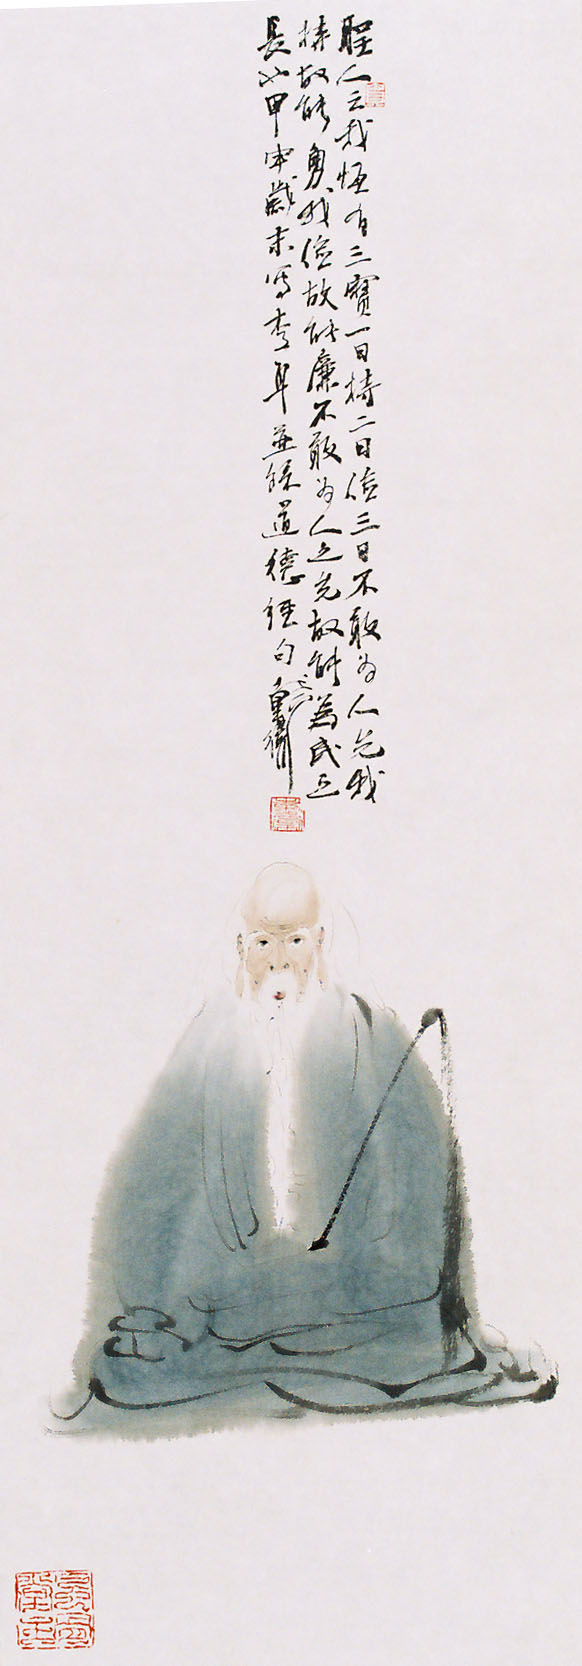 聖人云我恆有三寶一曰持二曰儉三曰不敢为人先我
持故能勇我儉故能廉不敢为人之先故能為民之
長甲申歲末寫李耳並錄道德經句